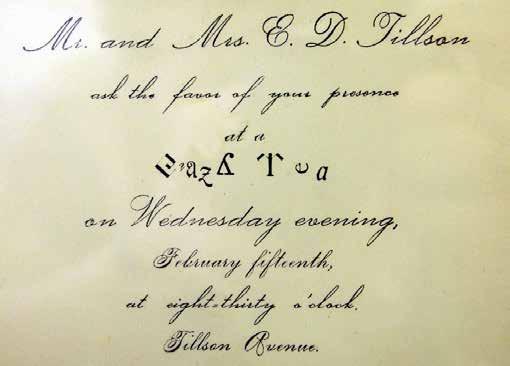 Mr. and Mrs. E. D. Tillson
ask the favor of your presence
at a
Crazy Tea
on Wednesday evening,
February fifteenth,
at eight-thirty o'clock.
Tillson Avenue.